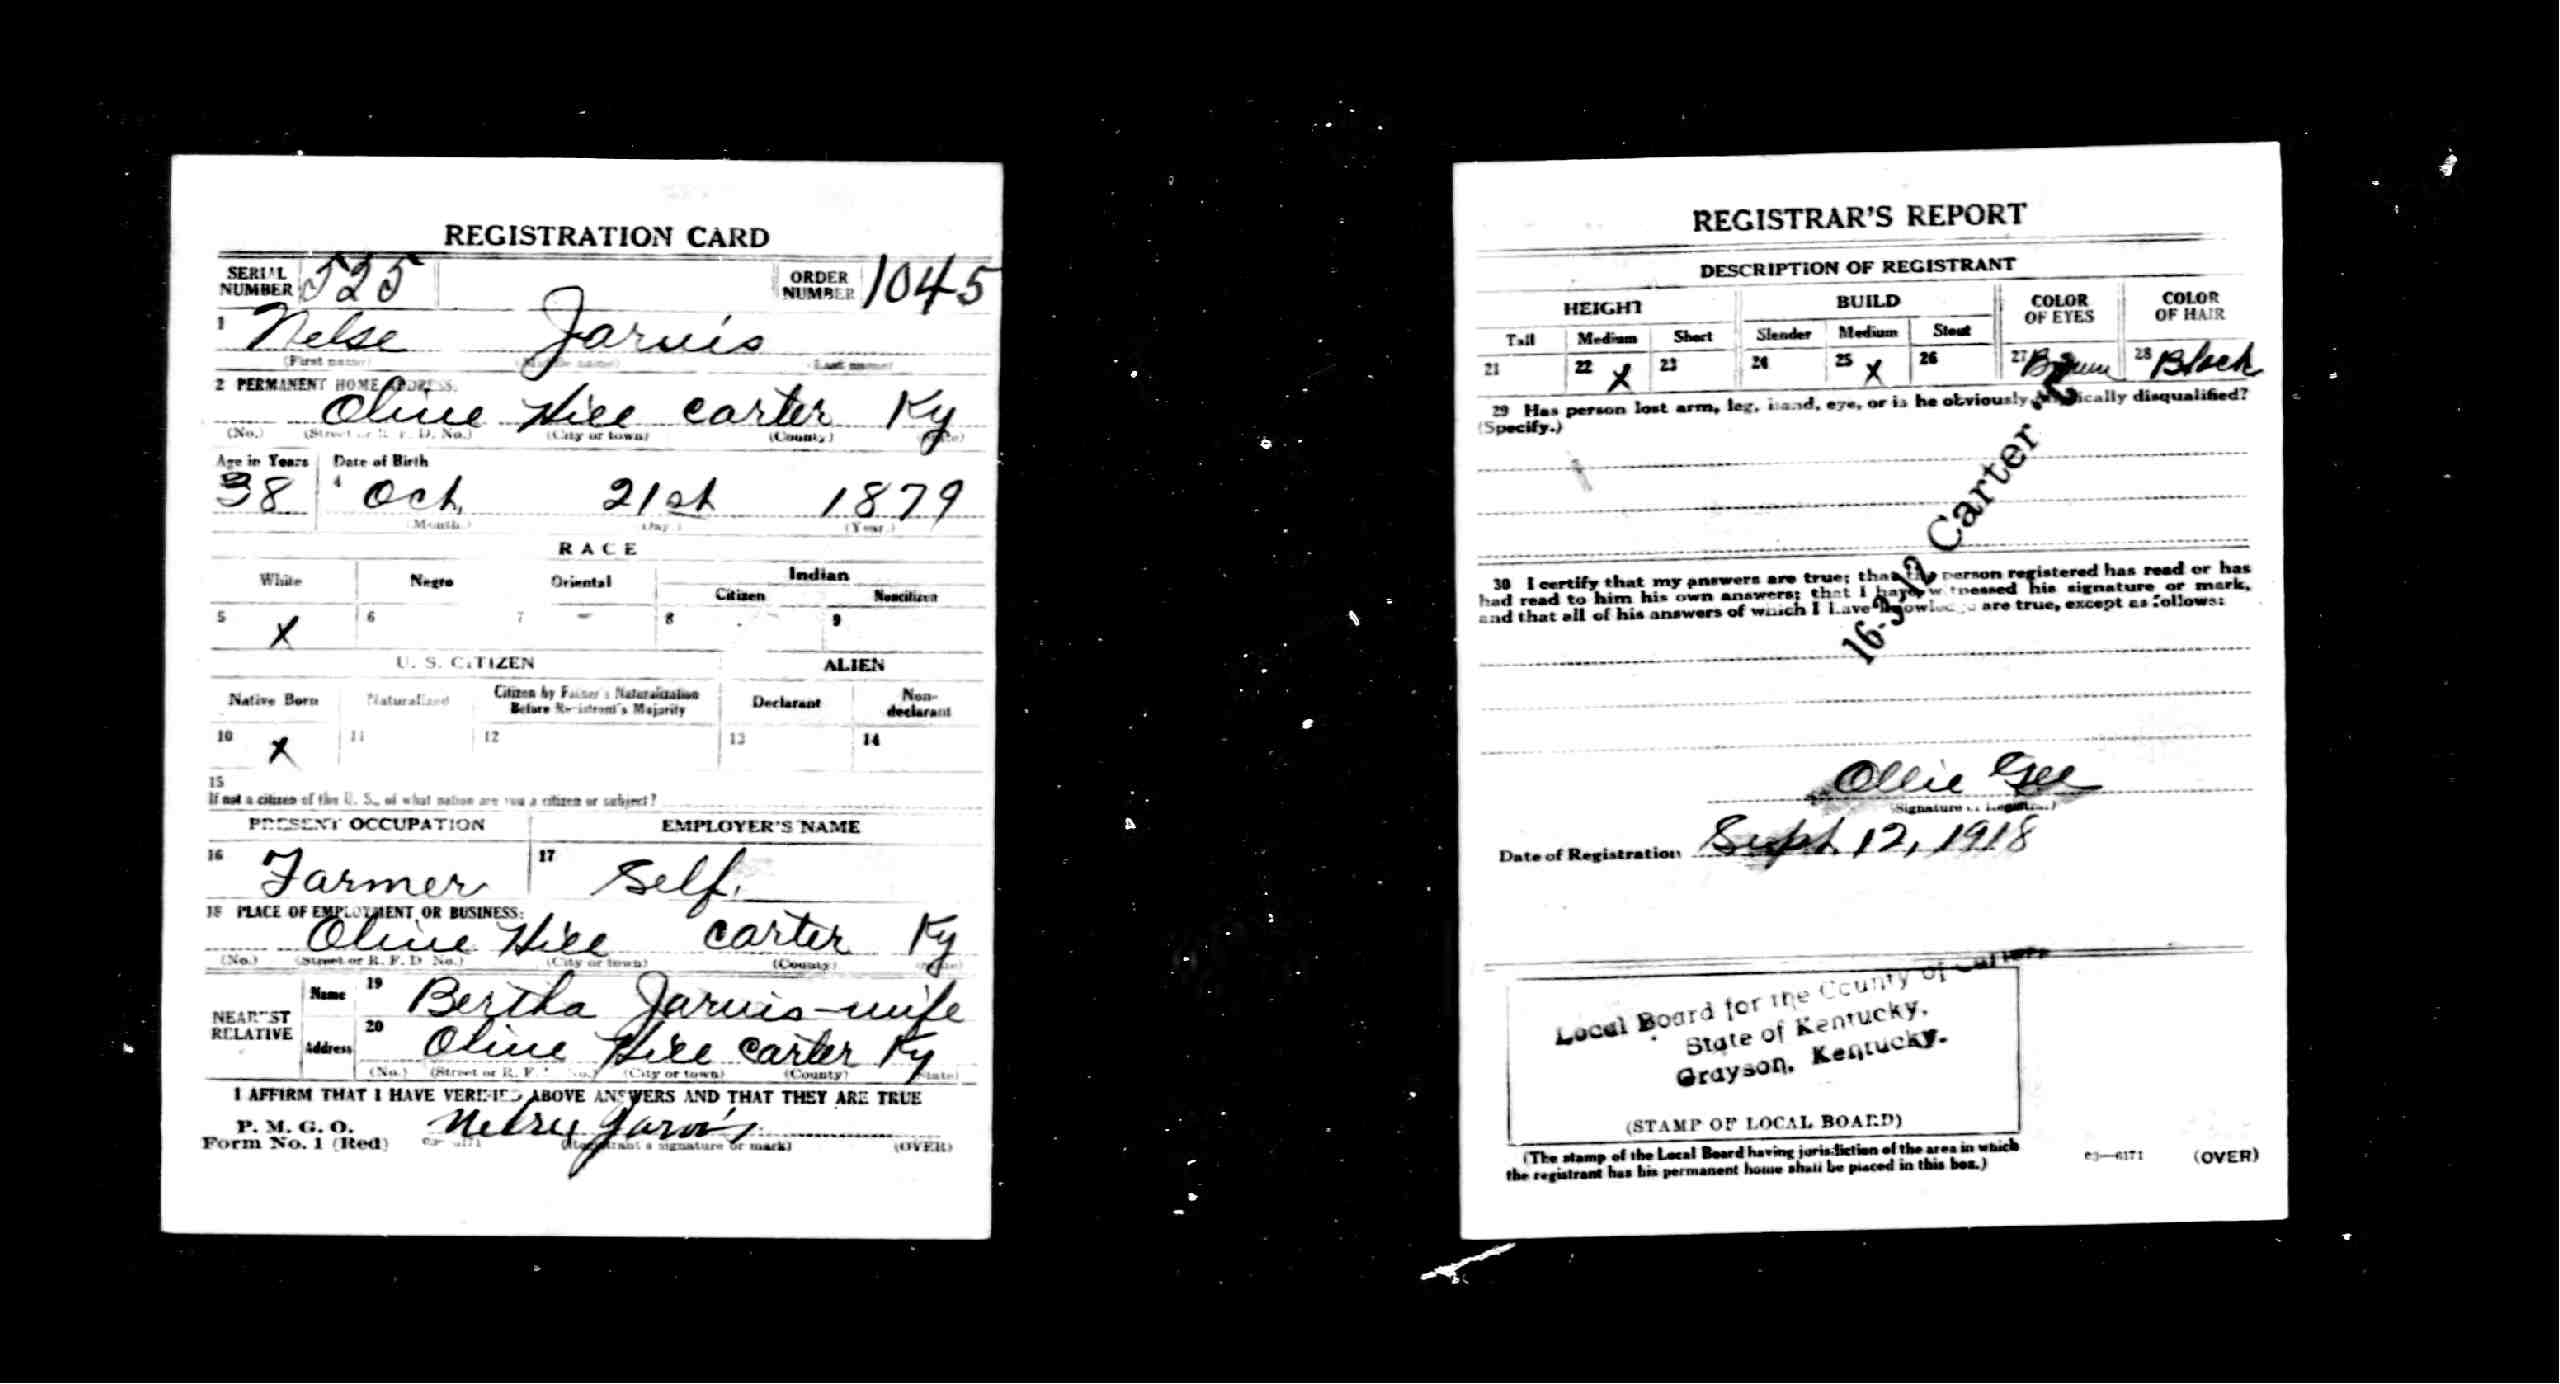 REGISTRATION CARD
SERIAL NUMBER 525 ORDER NUMBER 1045
1 Nelse Jarvis
(First name) (Middle name) (Last name)
2 PERMANENT HOME ADDRESS:
Olive Hill Carter Ky
(No.) (Street or R. F. D. No.) (City or town) (County) (State)
Age in Years Date of Birth
38 4 Oct. 21st 1879
(Month.) (Day.) (Year.)
RACE
White Negro Oriental Indian
Citizen Noncitizen
5 X 6 7 8 9
U. S. CITIZEN ALIEN
Native Born Naturalized Citizen by Father's Naturalization Before Registrant's Majority Declarant Non-declarant
10 X 11 12 13 14
15
If not a citizen of the U. S., of what nation are you a citizen or subject?
PRESENT OCCUPATION EMPLOYER'S NAME
16 Farmer 17 Self.
18 PLACE OF EMPLOYMENT OR BUSINESS:
Olive Hill Carter Ky
(No.) (Street or R. F. D. No.) (City or town) (County) (State)
NEAREST RELATIVE
Name 19 Bertha Jarvis-wife
Address 20 Olive Hill Carter Ky
(No.) (Street or R. F. D. No.) (City or town) (County) (State)
I AFFIRM THAT I HAVE VERIFIED ABOVE ANSWERS AND THAT THEY ARE TRUE
P. M. G. O.
Form No. 1 (Red) 03-6171 Jarvis (Registrant's signature or mark) (OVER)
REGISTRAR'S REPORT
DESCRIPTION OF REGISTRANT
HEIGHT BUILD COLOR OF EYES COLOR OF HAIR
Tall Medium Short Slender Medium Stout
21 22 X 23 24 25 X 26 27 Brown 28 Black
29 Has person lost arm, leg, hand, eye, or is he obviously physically disqualified?
(Specify.)
16-3-12 Carter
30 I certify that my answers are true; that the person registered has read or has
had read to him his own answers; that I have witnessed his signature or mark,
and that all of his answers of which I have knowledge are true, except as follows:
Ollie Gee
(Signature of Registrar)
Date of Registration Sept. 12, 1918
Local Board for the County of Carter
State of Kentucky,
Grayson, Kentucky.
(STAMP OF LOCAL BOARD)
(The stamp of the Local Board having jurisdiction of the area in which
the registrant has his permanent home shall be placed in this box.)
03-6171 (OVER)